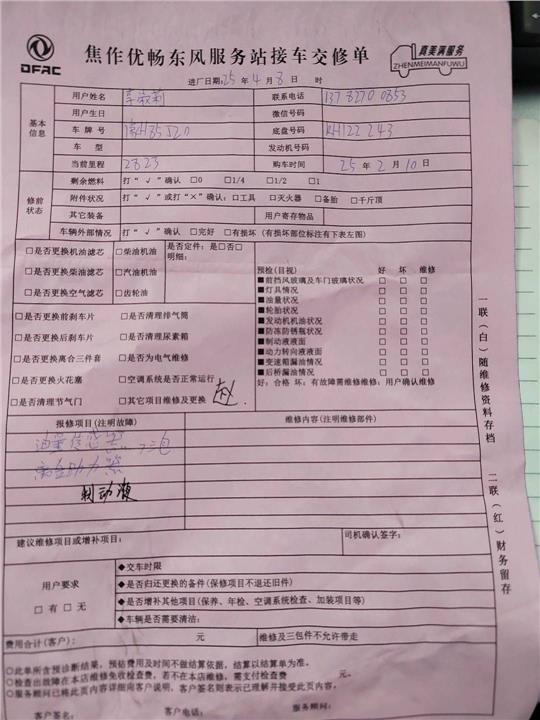 DFAC
焦作优畅东风服务站接车交修单
真美满服务
ZHENMEIMANFUWU
进厂日期:25年4月8日 时
基本信息
用户姓名 联系电话 137 8270 0853
用户生日 微信号码
车牌号 豫H85J20 底盘号码 KH122243
车型 发动机号码
当前里程 2823 购车时间 25年2月10日
修前状态
剩余燃料 打"√"确认 □0 □1/4 □1/2 □1
附件状况 打"√"或打"×"确认:□工具 □灭火器 □备胎 □千斤顶
其它装备 用户寄存物品
车辆外部情况 打"√"确认 □完好 □有损坏(有损坏部位标注有下表左图)
□是否更换机油滤芯 □柴油机油
□是否更换柴油滤芯 □汽油机油
□是否更换空气滤芯 □齿轮油
是否定件:是□否□
明细:
□是否更换前刹车片 □是否清理排气筒
□是否更换后刹车片 □是否清理尿素箱
□是否更换离合三件套 □是否为电气维修
□是否更换火花塞 □空调系统是否正常运行
□是否清理节气门 □其它项目维修及更换 赵
预检(目视) 好 坏 维修
■前挡风玻璃及车门玻璃状况 □ □ □
■灯具情况 □ □ □
■油量状况 □ □ □
■轮胎状况 □ □ □
■发动机机油状况 □ □ □
■防冻防锈瓶状况 □ □ □
■制动液液面 □ □ □
■动力转向液液面 □ □ □
■变速箱漏油情况 □ □ □
■后桥漏油情况 □ □ □
好:合格 坏:有故障需维修维修:用户确认维修
报修项目(注明故障) 维修内容(注明维修部件)
油量传感器 三包
离合助力器
制动液
建议维修项目或增补项目: 司机确认签字:
用户要求
□有□无
◆交车时限
◆是否归还更换的备件(保修项目不退还旧件)
◆是否增补其他项目(保养、年检、空调系统检查、加装项目等)
◆车辆是否需要清洁:
费用合计(客户): 元 维修及三包件不允许带走
○此单所含预诊断结果,预估费用及时间不做结算依据,结算以结算单为准。
○检查出故障在本店维修免收检查费,若不在本店维修,需支付检查费 元。
○服务顾问已将此页内容详细向客户说明,客户签名则表示已理解并接受此页内容。
客户签名: 客户电话: 服务顾问:
一联(白)随维修资料存档
二联(红)财务留存